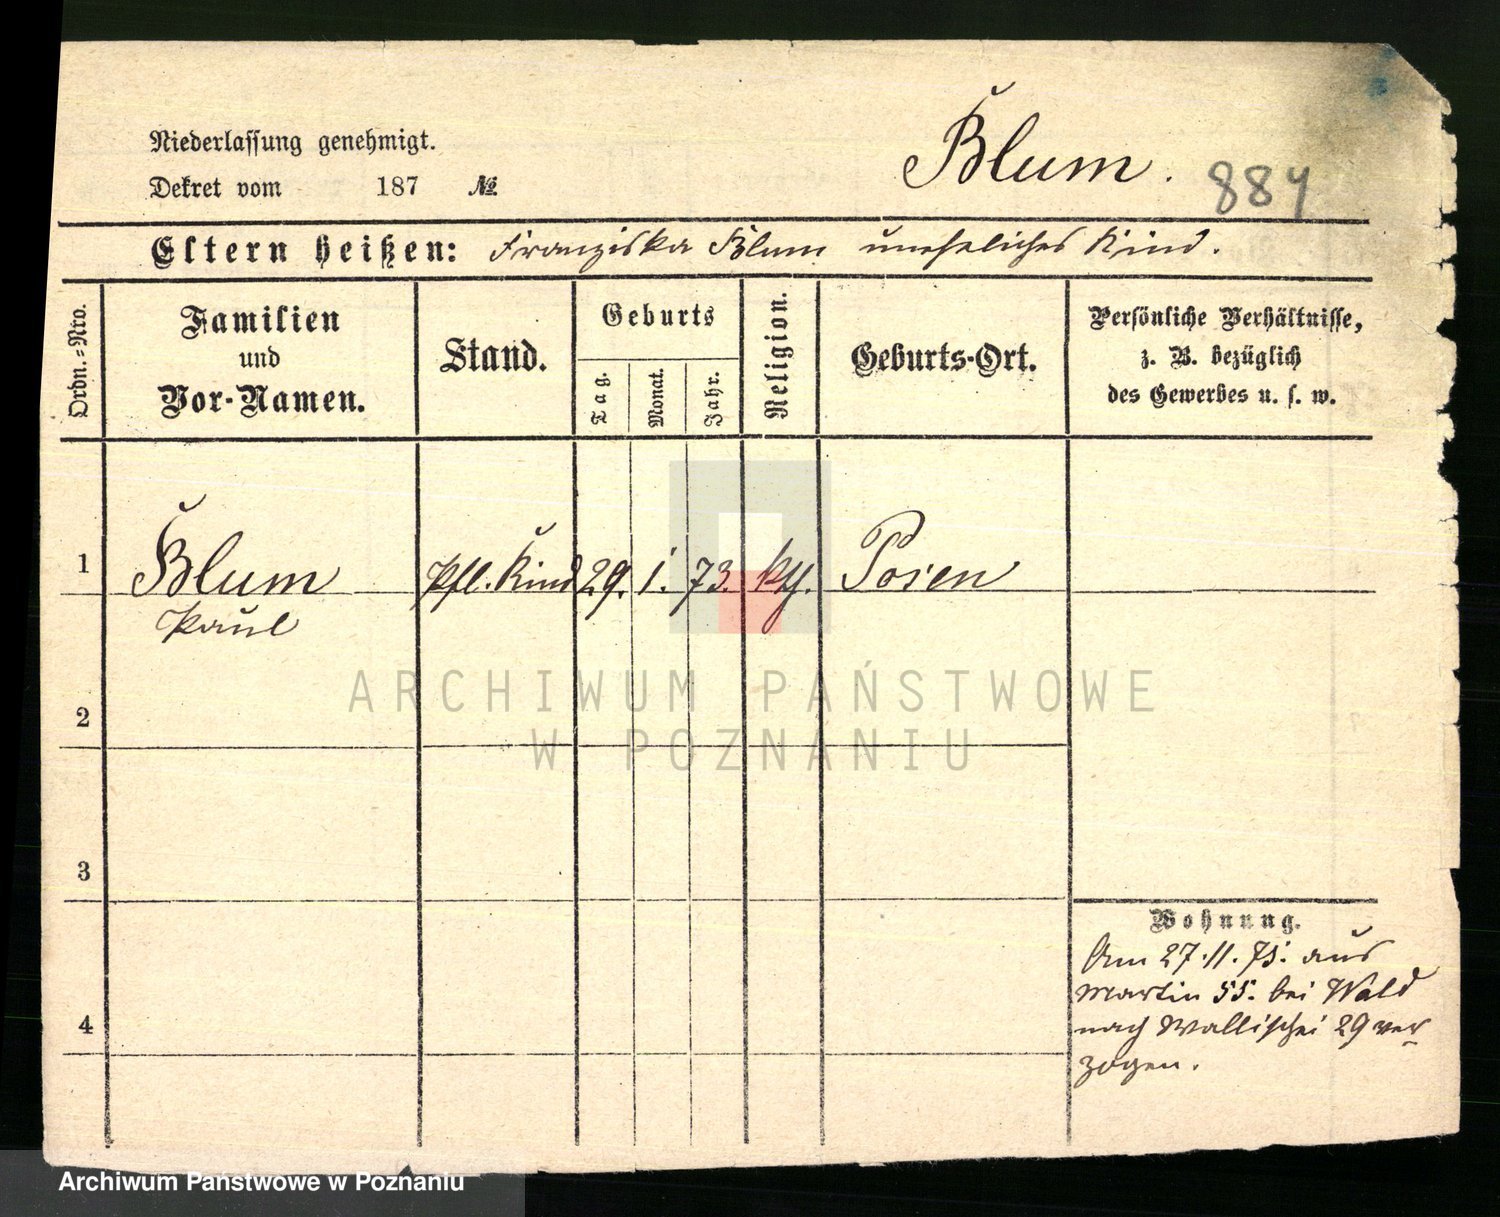 Niederlassung genehmigt.
Dekret vom 187 №
Blum. 884
Eltern heißen: Franziska Blum uneheliches Kind.
Ordn.=Nro.
Familien
und
Vor-Namen.
Stand.
Geburts
Tag.
Monat.
Jahr.
Religion.
Geburts-Ort.
Persönliche Verhältnisse,
z. B. bezüglich
des Gewerbes u. s. w.
1 Blum Pfl. Kind 29. 1. 73. kth. Posen
Paul
ARCHIWUM PAŃSTWOWE
2
W POZNANIU
3
Wohnung.
Am 27.11.75. aus
Martin 55. bei Wald
4
nach Wallischei 29 ver
zogen.
Archiwum Państwowe w Poznaniu